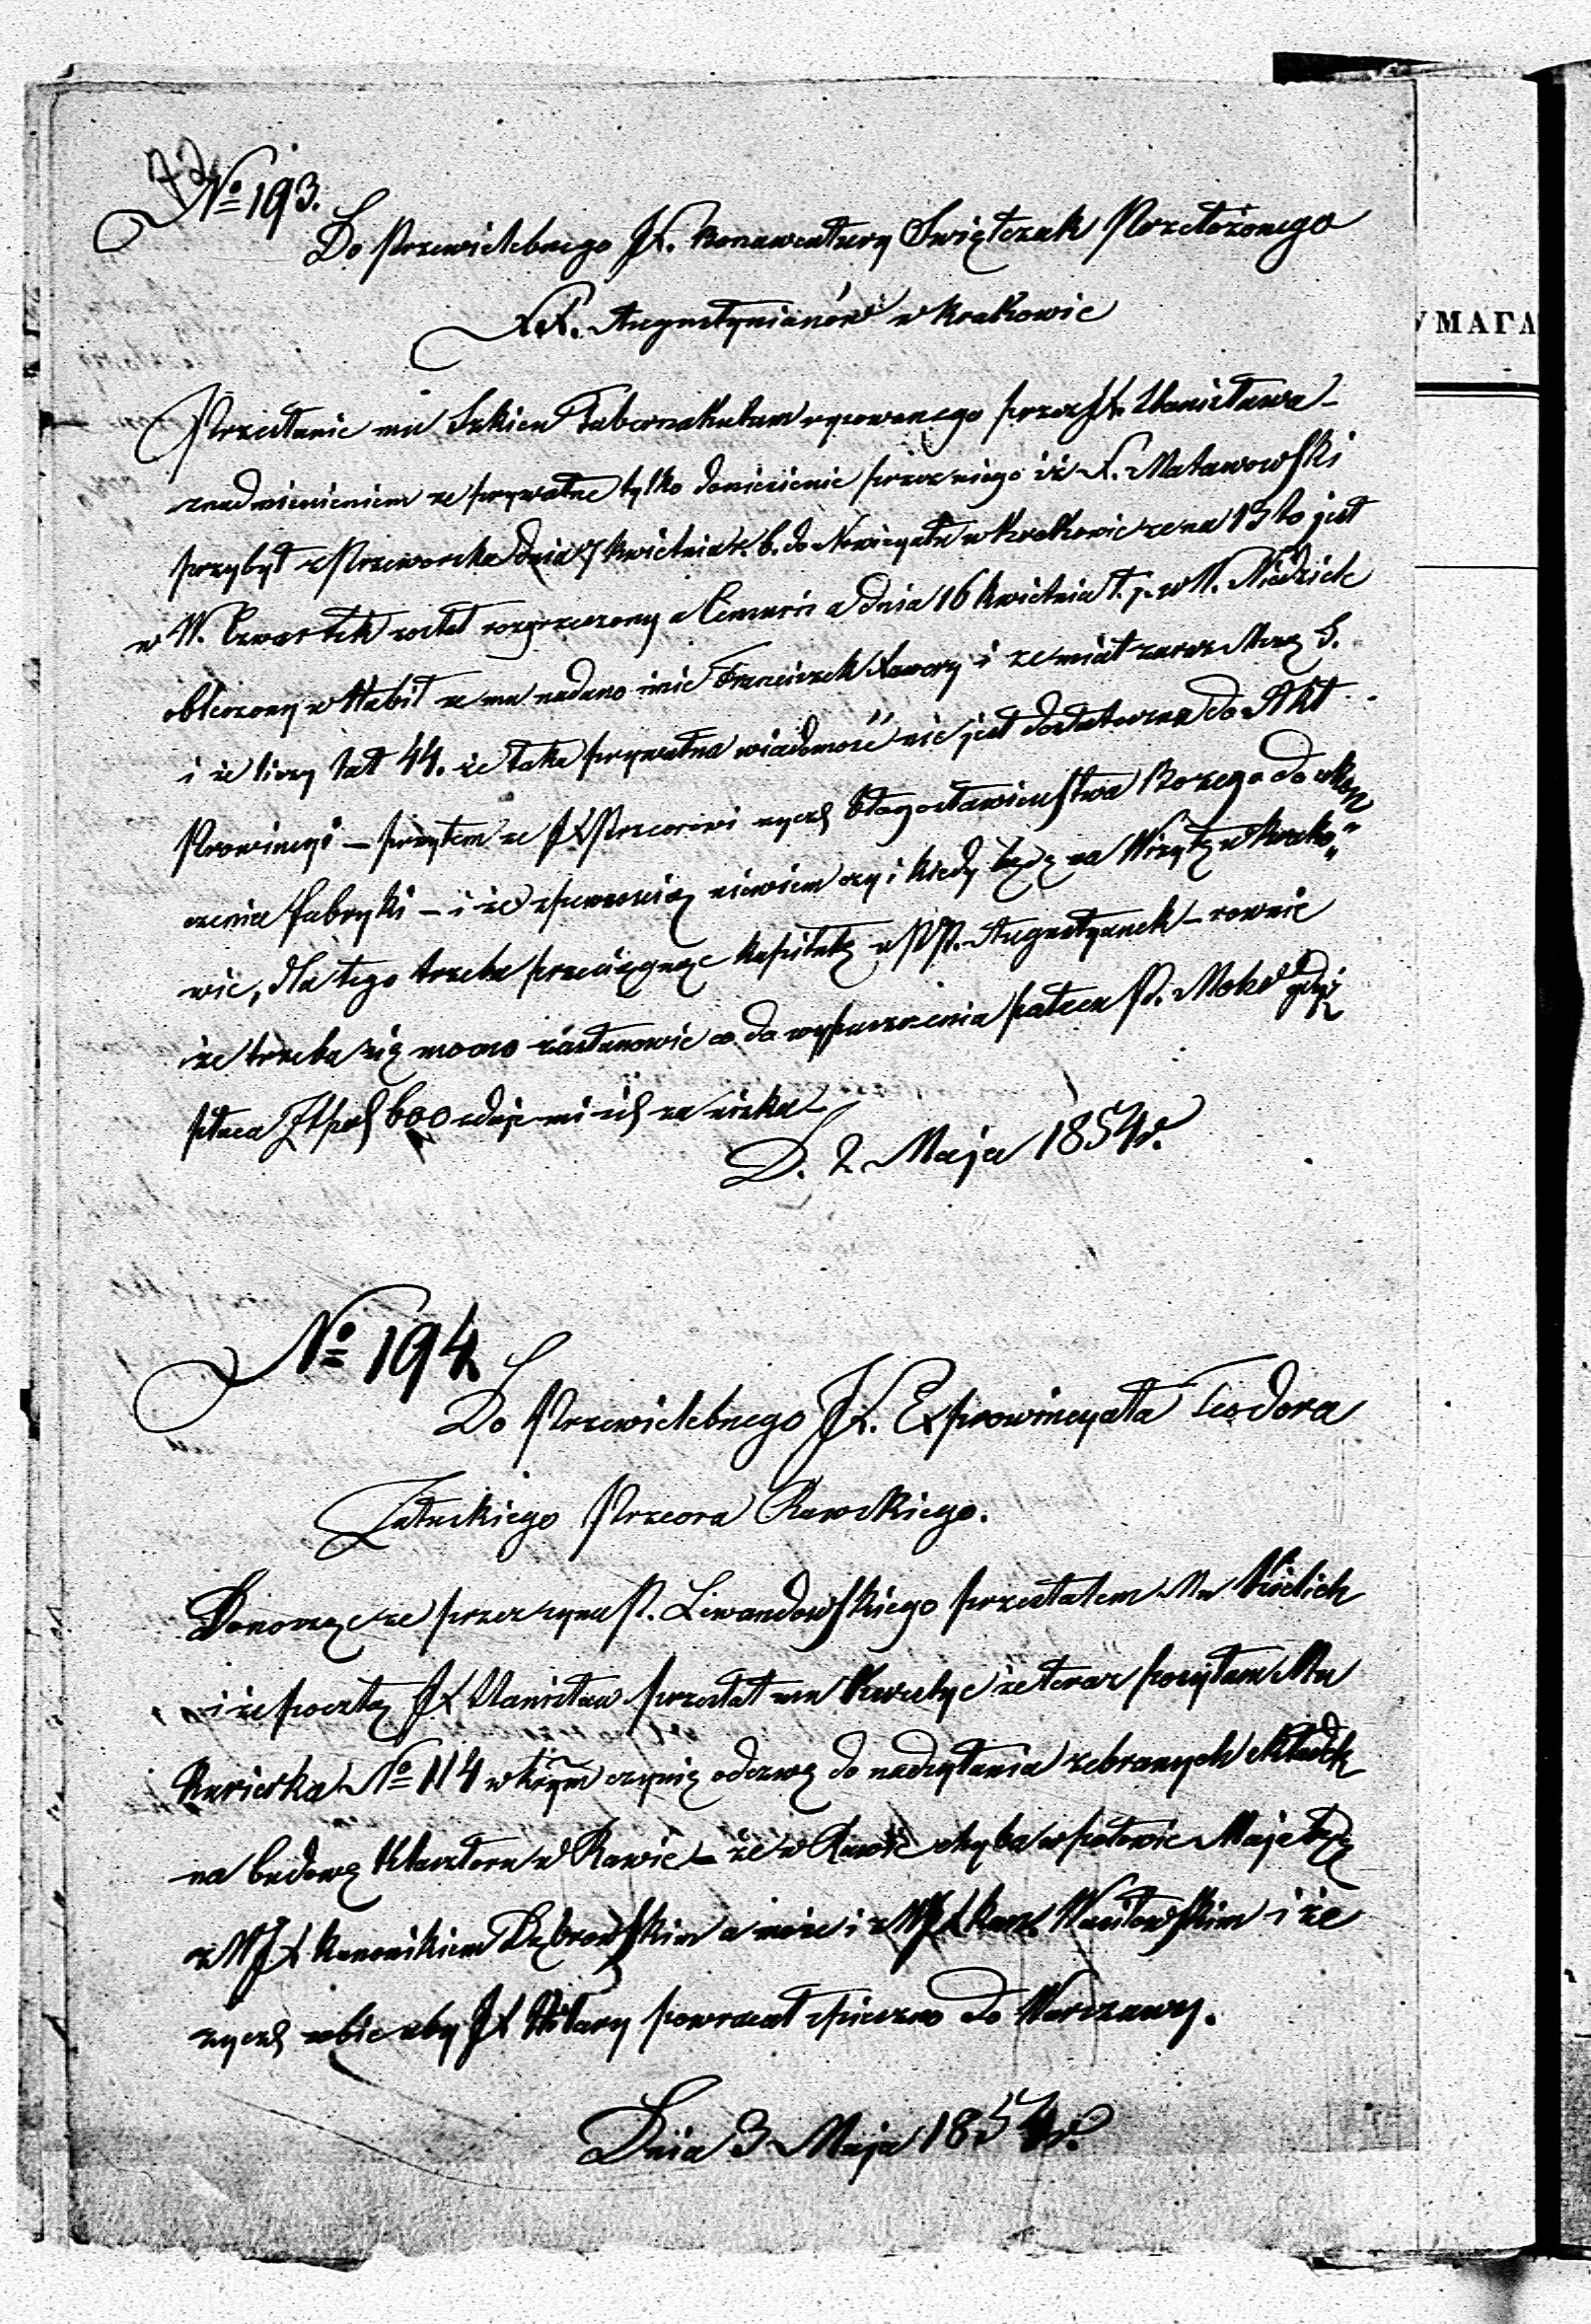 72
№ 193.
Do Przewielebnego JX. Bonawentury Świętczak Przełożonego
XX. Augustynianów w Krakowie
Przesłanie mu Szkicu Tabernakulum rysowanego przez JX. Stanisława –
z nadmienieniem ze prywatne tylko doniesienie przez niego iż X. Matawowski
przybył z Przeworska dnia 7 Kwietnia r. b. do Nowicyatu w Krakowie ze na 13 to jest
w W. Czwartek został rozgrzeszony a Censuris a dnia 16 Kwietnia t. r. w W. Niedziele
obłeczony w Habit ze mu nadano imie Franciszek Xawery i ze miał zaraz Mszę S.
i że liczy lat 44. że taka prywatna wiadomość nie jest dostateczna do Akt
Prowincyi – przytem ze JXPrzeorowi życzę błogosławieństwa Bożego do ukoń„
czenia fabryki – i że z pewnością niewiem czy i kiedy będę na Wizytę w Krako„
wie, dla tego trzeba przeciągnąć Kapitułę u PP. Augustyanek – rownie
że trzeba się mocno zastanowić co do wypuszczenia pałacu P. Mokr gdyż
płaca Złpol 600 zdaje mi się za nizka –
D. 2 Maja 1854 r.
№ 194
Do Przewielebnego JX. Exprowincyała Teodora
Załuskiego Przeora Rawskiego.
Donoszę ze przez syna P. Lewandowskiego przesłałem Mu Kielich
i że pocztą JX Stanisław przesłał mu Kwestyę że teraz posyłam Mu
Kurierka № 114 w którym czynię odezwę do nadsyłania zebranych składek
na budowę Klasztoru w Rawie – że w Rawie chyba w połowie Maja będę
z WJX Kanonikiem Dąbrowskim a może i z WJX Kan. Wasiłowskim i że
życzę sobie aby JX Hilary powracał spieszno do Warszawy.
Dnia 3 Maja 1854 r.
УМАГА